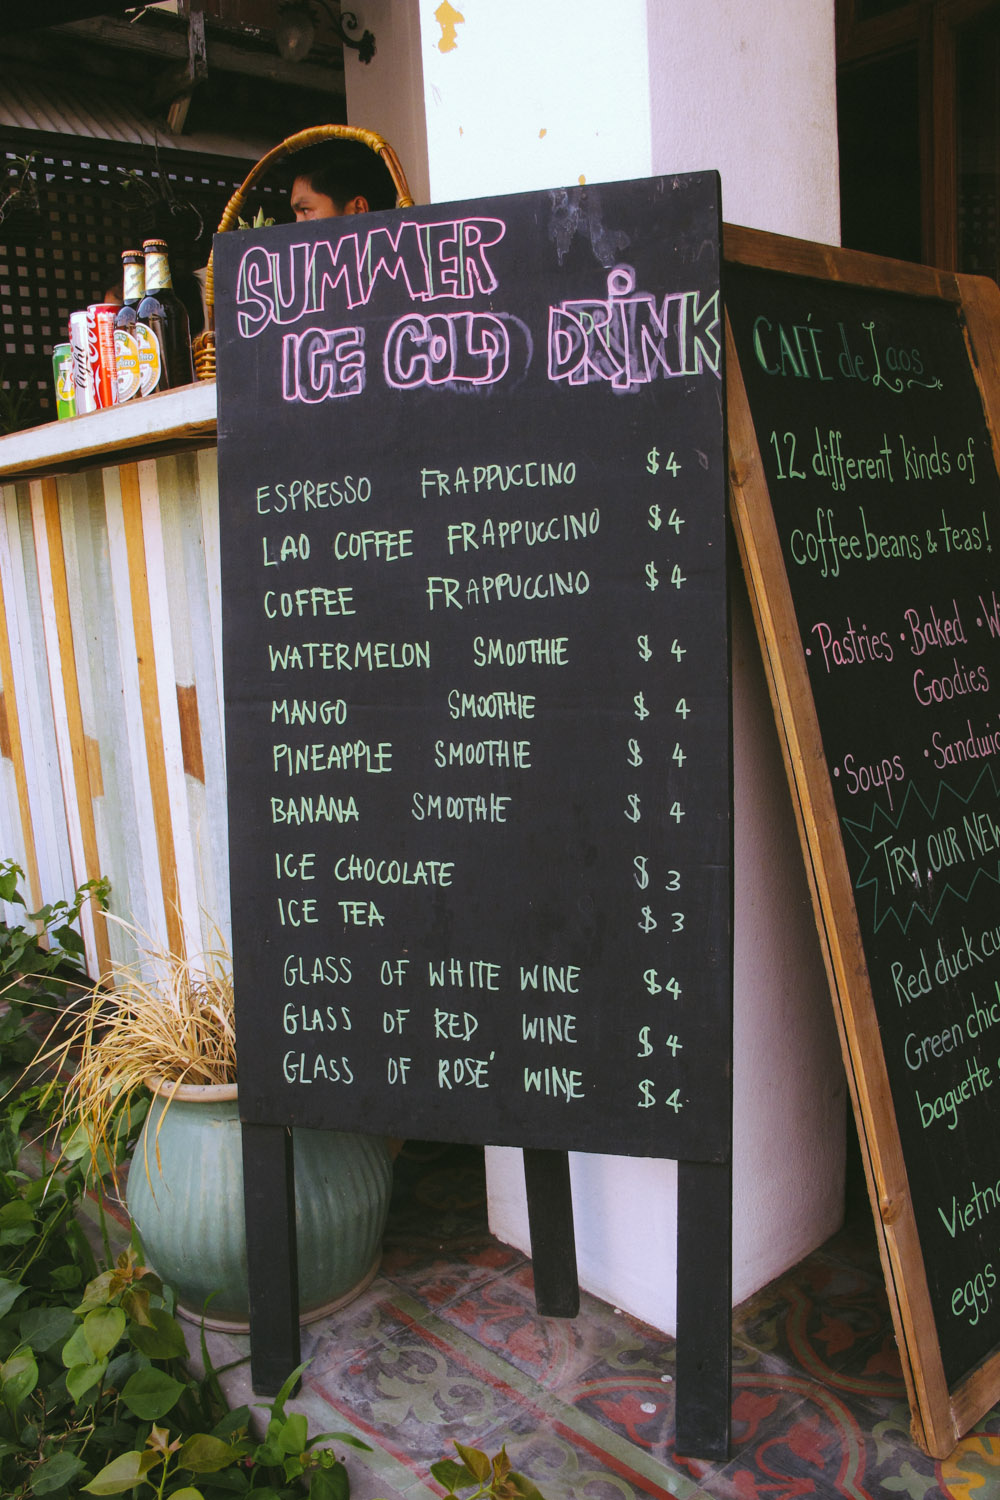 SUMMER
ICE COLD DRINK
ESPRESSO FRAPPUCCINO $4
LAO COFFEE FRAPPUCCINO $4
COFFEE FRAPPUCCINO $4
WATERMELON SMOOTHIE $ 4
MANGO SMOOTHIE $ 4
PINEAPPLE SMOOTHIE $ 4
BANANA SMOOTHIE $ 4
ICE CHOCOLATE $ 3
ICE TEA $ 3
GLASS OF WHITE WINE $4
GLASS OF RED WINE $ 4
GLASS OF ROSÉ WINE $ 4
CAFÉ de Laos
12 different kinds of
coffee beans & teas!
• Pastries • Baked •
Goodies
• Soups •
TRY OUR NEW
Red duck
Green
baguette
eggs
light